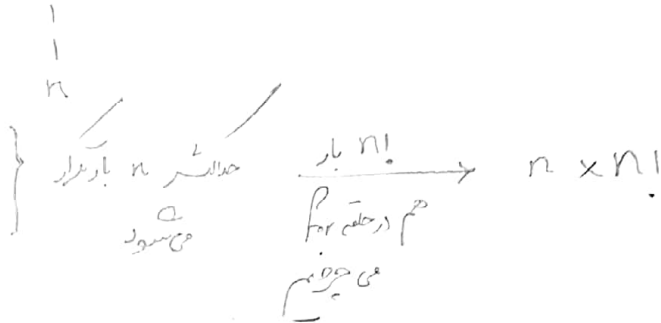 1
1
n
} حداکثر n بار تکرار می‌شود
n! بار
هم در حلقه for
می چرخیم
n × n!